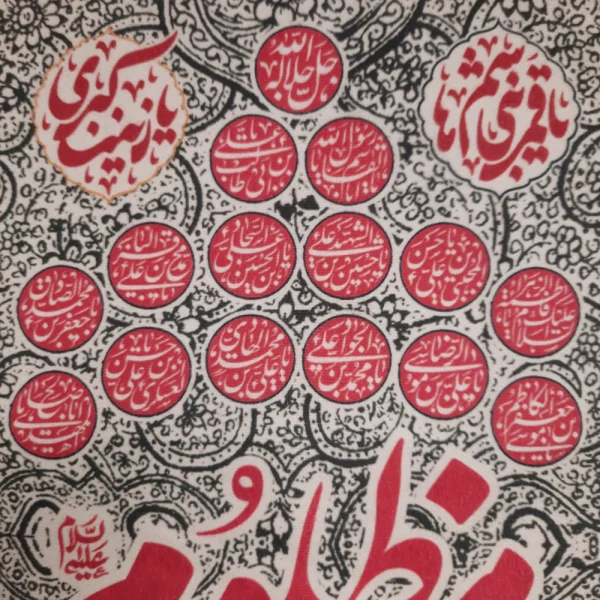 جل جلاله
یا قمر بنی هاشم
یا زینب کبری
یا علی بن ابی طالب
یا حسن بن علی المجتبی
یا حسین بن علی الشهید
یا علی بن الحسین السجاد
یا محمد بن علی الباقر
یا جعفر بن محمد الصادق
یا موسی بن جعفر الکاظم
یا علی بن موسی الرضا
یا محمد بن علی الجواد
یا علی بن محمد الهادی
یا حسن بن علی العسکری
مظلوم
و
علیه السلام